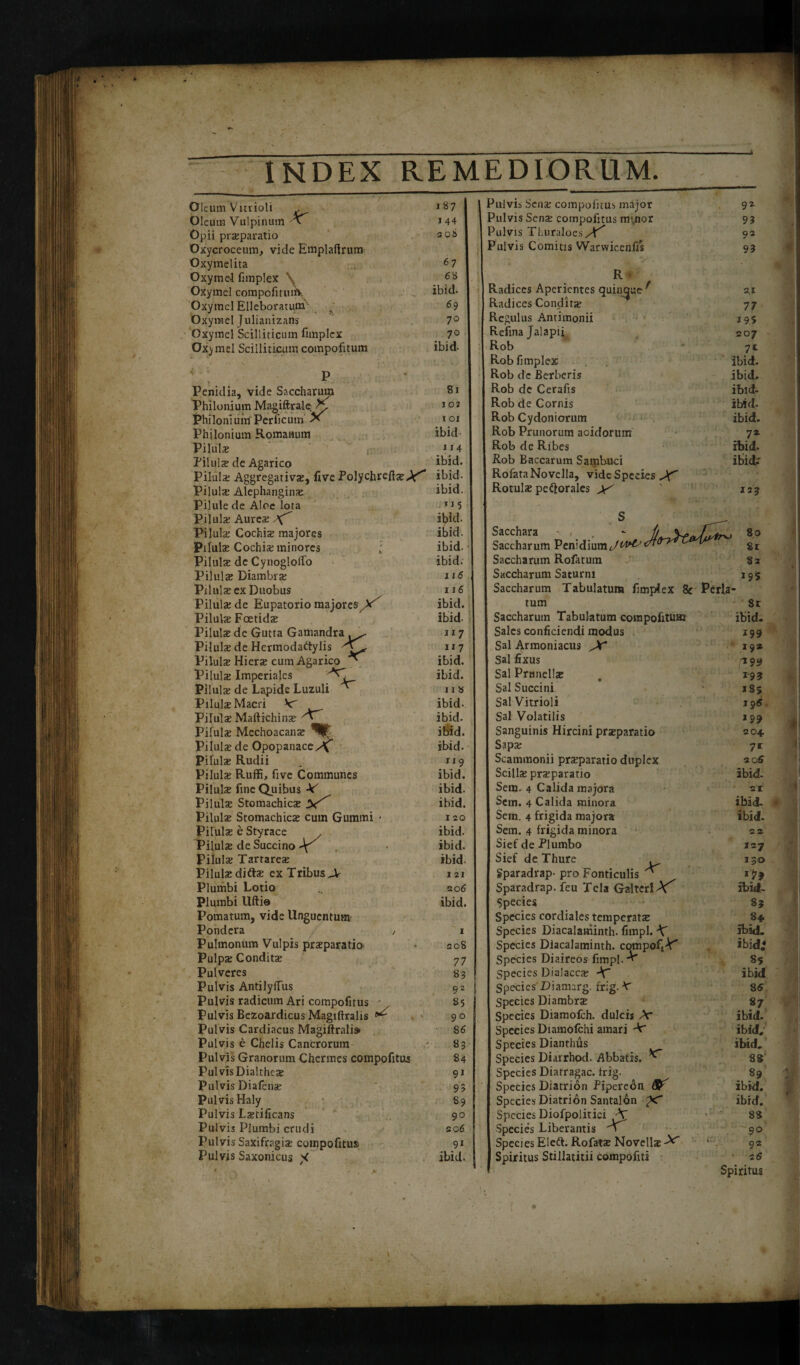 INDEX REMEDIORUM.
Oleum Vitrioli 187
Oleum Vulpinum 144
Opii præparatio 208
Oxycroceum, vide Emplastrum
Oxymelita 67
Oxymel simplex 68
Oxymel compositum ibid.
Oxymel Elleboratum 69
Oxymel Julianizans 70
Oxymel Scilliticum simplex 70
Oxymel Scilliticum compositum ibid.
P
Penidia, vide Saccharum 81
Philonium Magistrale 102
Philonium Persicum 101
Philonium Romanum ibid
Pilulæ 114
Pilulæ de Agarico ibid.
Pilulæ Aggregativæ, sive Polychrestæ ibid.
Pilulæ Alephanginæ ibid.
Pilule de Aloe lota 115
Pilulæ Aureæ ibid.
Pilulæ Cochiæ majores ibid.
Pilulæ Cochiæ minores ibid.
Pilulæ de Cynoglosso ibid.
Pilulæ Diambræ 116
Pilulæ ex Duobus 116
Pilulæ de Eupatorio majores ibid.
Pilulæ Fœtidæ ibid.
Pilulæ de Gutta Gamandra 117
Pilulæ de Hermodactylis 117
Pilulæ Hieræ cum Agarico ibid.
Pilulæ Imperiales ibid.
Pilulæ de Lapide Luzuli 118
Pilulæ Macri ibid.
Pilulæ Mastichinæ ibid.
Pilulæ Mechoacanæ ibid.
Pilulæ de Opopanace ibid.
Pilulæ Rudii 119
Pilulæ Ruffi, sive Communes ibid.
Pilulæ sine Quibus ibid.
Pilulæ Stomachicæ ibid.
Pilulæ Stomachicæ cum Gummi 120
Pilulæ è Styrace ibid.
Pilulæ de Succino ibid.
Pilulæ Tartareæ ibid.
Pilulæ dictæ ex Tribus 121
Plumbi Lotio 206
Plumbi Ustio ibid.
Pomatum, vide Unguentum
Pondera 1
Pulmonum Vulpis præparatio 208
Pulpæ Conditæ 77
Pulveres 83
Pulvis Antilyssus 92
Pulvis radicum Ari compositus 85
Pulvis Bezoardicus Magistralis 90
Pulvis Cardiacus Magistralis 86
Pulvis è Chelis Cancrorum 83
Pulvis Granorum Chermes compositus 84
Pulvis Dialtheæ 91
Pulvis Diasenæ 93
Pulvis Haly 89
Pulvis Lætificans 90
Pulvis Plumbi crudi 206
Pulvis Saxifragiæ compositus 91
Pulvis Saxonicus ibid.
Pulvis Senæ compositus major 92
Pulvis Senæ compositus minor 93
Pulvis Thuraloes 92
Pulvis Comitis Warwicensis 93
R
Radices Aperientes quinque 21
Radices Conditæ 77
Regulus Antimonii 195
Resina Jalapii 207
Rob 71
Rob simplex ibid.
Rob de Berberis ibid.
Rob de Cerasis ibid.
Rob de Cornis ibid.
Rob Cydoniorum ibid.
Rob Prunorum acidorum 72
Rob de Ribes ibid.
Rob Baccarum Sambuci ibid.
Rosata Novella, vide Species
Rotulæ pectorales 123
S
Sacchara 80
Saccharum Penidium sive 81
Saccharum Rosatum 82
Saccharum Saturni 195
Saccharum Tabulatum simplex & Perla-
tum 81
Saccharum Tabulatum compositum ibid.
Sales conficiendi modus 199
Sal Armoniacus 192
Sal fixus 199
Sal Prunellæ 193
Sal Succini 185
Sal Vitrioli 196
Sal Volatilis 199
Sanguinis Hircini præparatio 204
Sapæ 71
Scammonii præparatio duplex 206
Scillæ præparatio ibid.
Sem. 4 Calida majora 21
Sem. 4 Calida minora ibid.
Sem. 4 frigida majora ibid.
Sem. 4 frigida minora 22
Sief de Plumbo 127
Sief de Thure 130
Sparadrap. pro Fonticulis 179
Sparadrap. seu Tela Galteri ibid.
Species 83
Species cordiales temperatæ 84
Species Diacalaminth. simpl. ibid.
Species Diacalaminth. compos. ibid.
Species Diaireos simpl. 85
Species Dialaccæ ibid
Species Diamarg. frig. 86
Species Diambræ 87
Species Diamosch. dulcis ibid.
Species Diamoschi amari ibid.
Species Dianthûs ibid.
Species Diarrhod. Abbatis. 88
Species Diatragac. frig. 89
Species Diatriôn Pipereôn ibid.
Species Diatriôn Santalôn ibid.
Species Diospolitici 88
Species Liberantis 90
Species Elect. Rosatæ Novellæ 92
Spiritus Stillatitii compositi 26
Spiritus